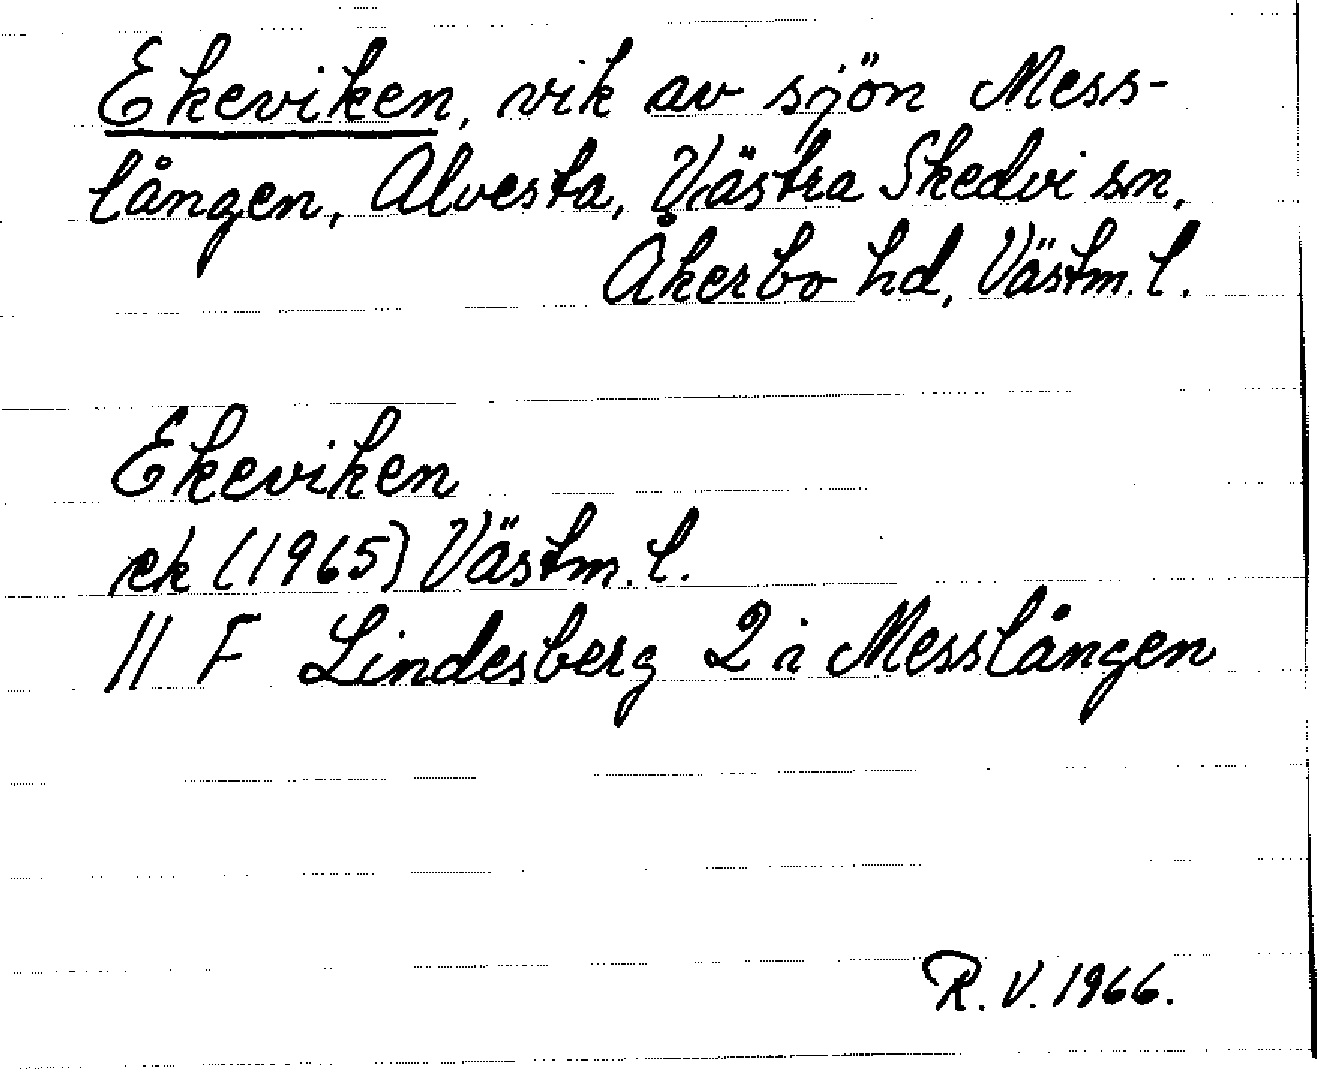 Ekeviken, vik av sjön Mess-
lången, Alvesta, Västra Skedvi sn,
Åkerbo hd, Västm. l.
Ekeviken
ek (1965) Västm. l.
11 F Lindesberg 2 i Messlången
R. V. 1966.